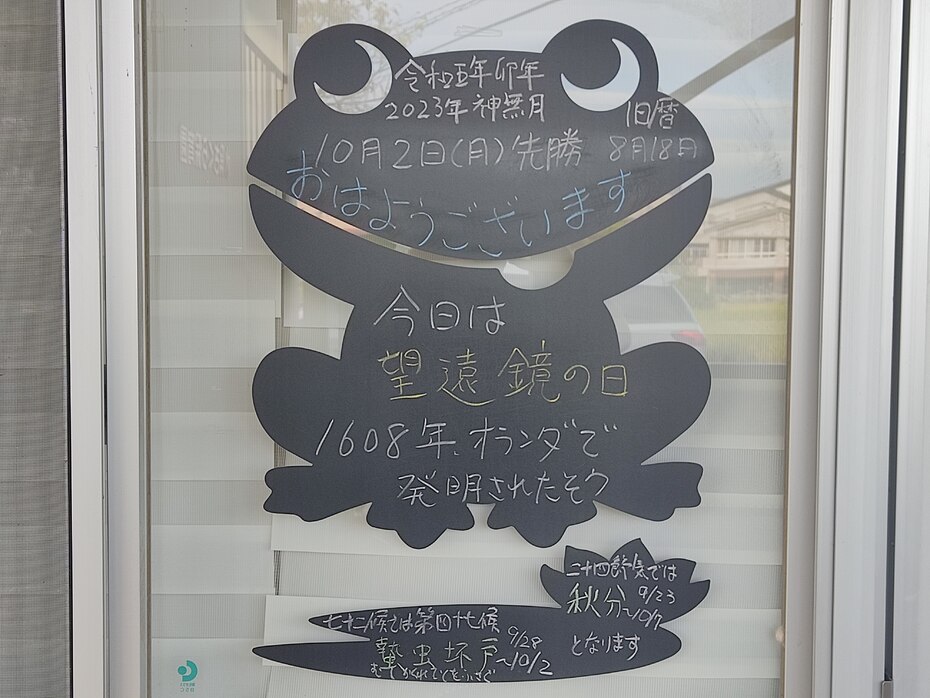 令和五年卯年
2023年神無月
旧暦
10月2日(月)先勝 8月18日
おはようございます
今日は
望遠鏡の日
1608年、オランダで
発明されたそう
二十四節気では
秋分 9/23
~10/7
となります
七十二候では第四十七候
蟄虫坏戸 9/28
~10/2
むしかくれてとをふさぐ